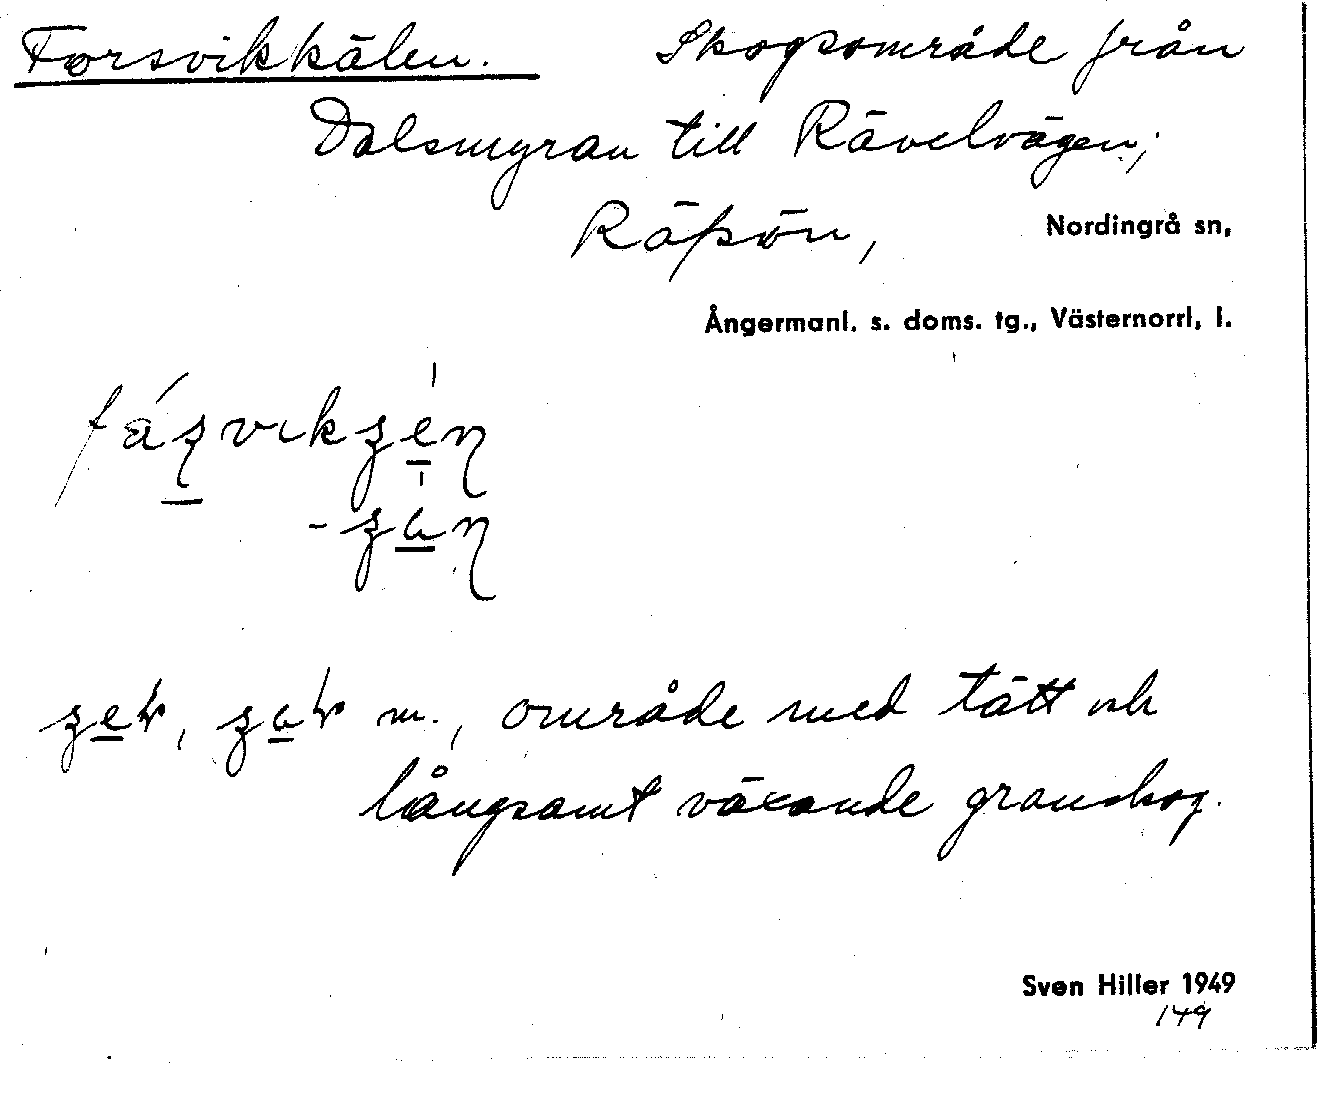 Forsvikkälen. Skogsområde från
Dalsmyran till Rävelvägen,
Räpön, Nordingrå sn,
Ångermanl. s. doms. tg., Västernorrl. l.
m., område med tätt och
långsamt växande granskog.
Sven Hiller 1949
149